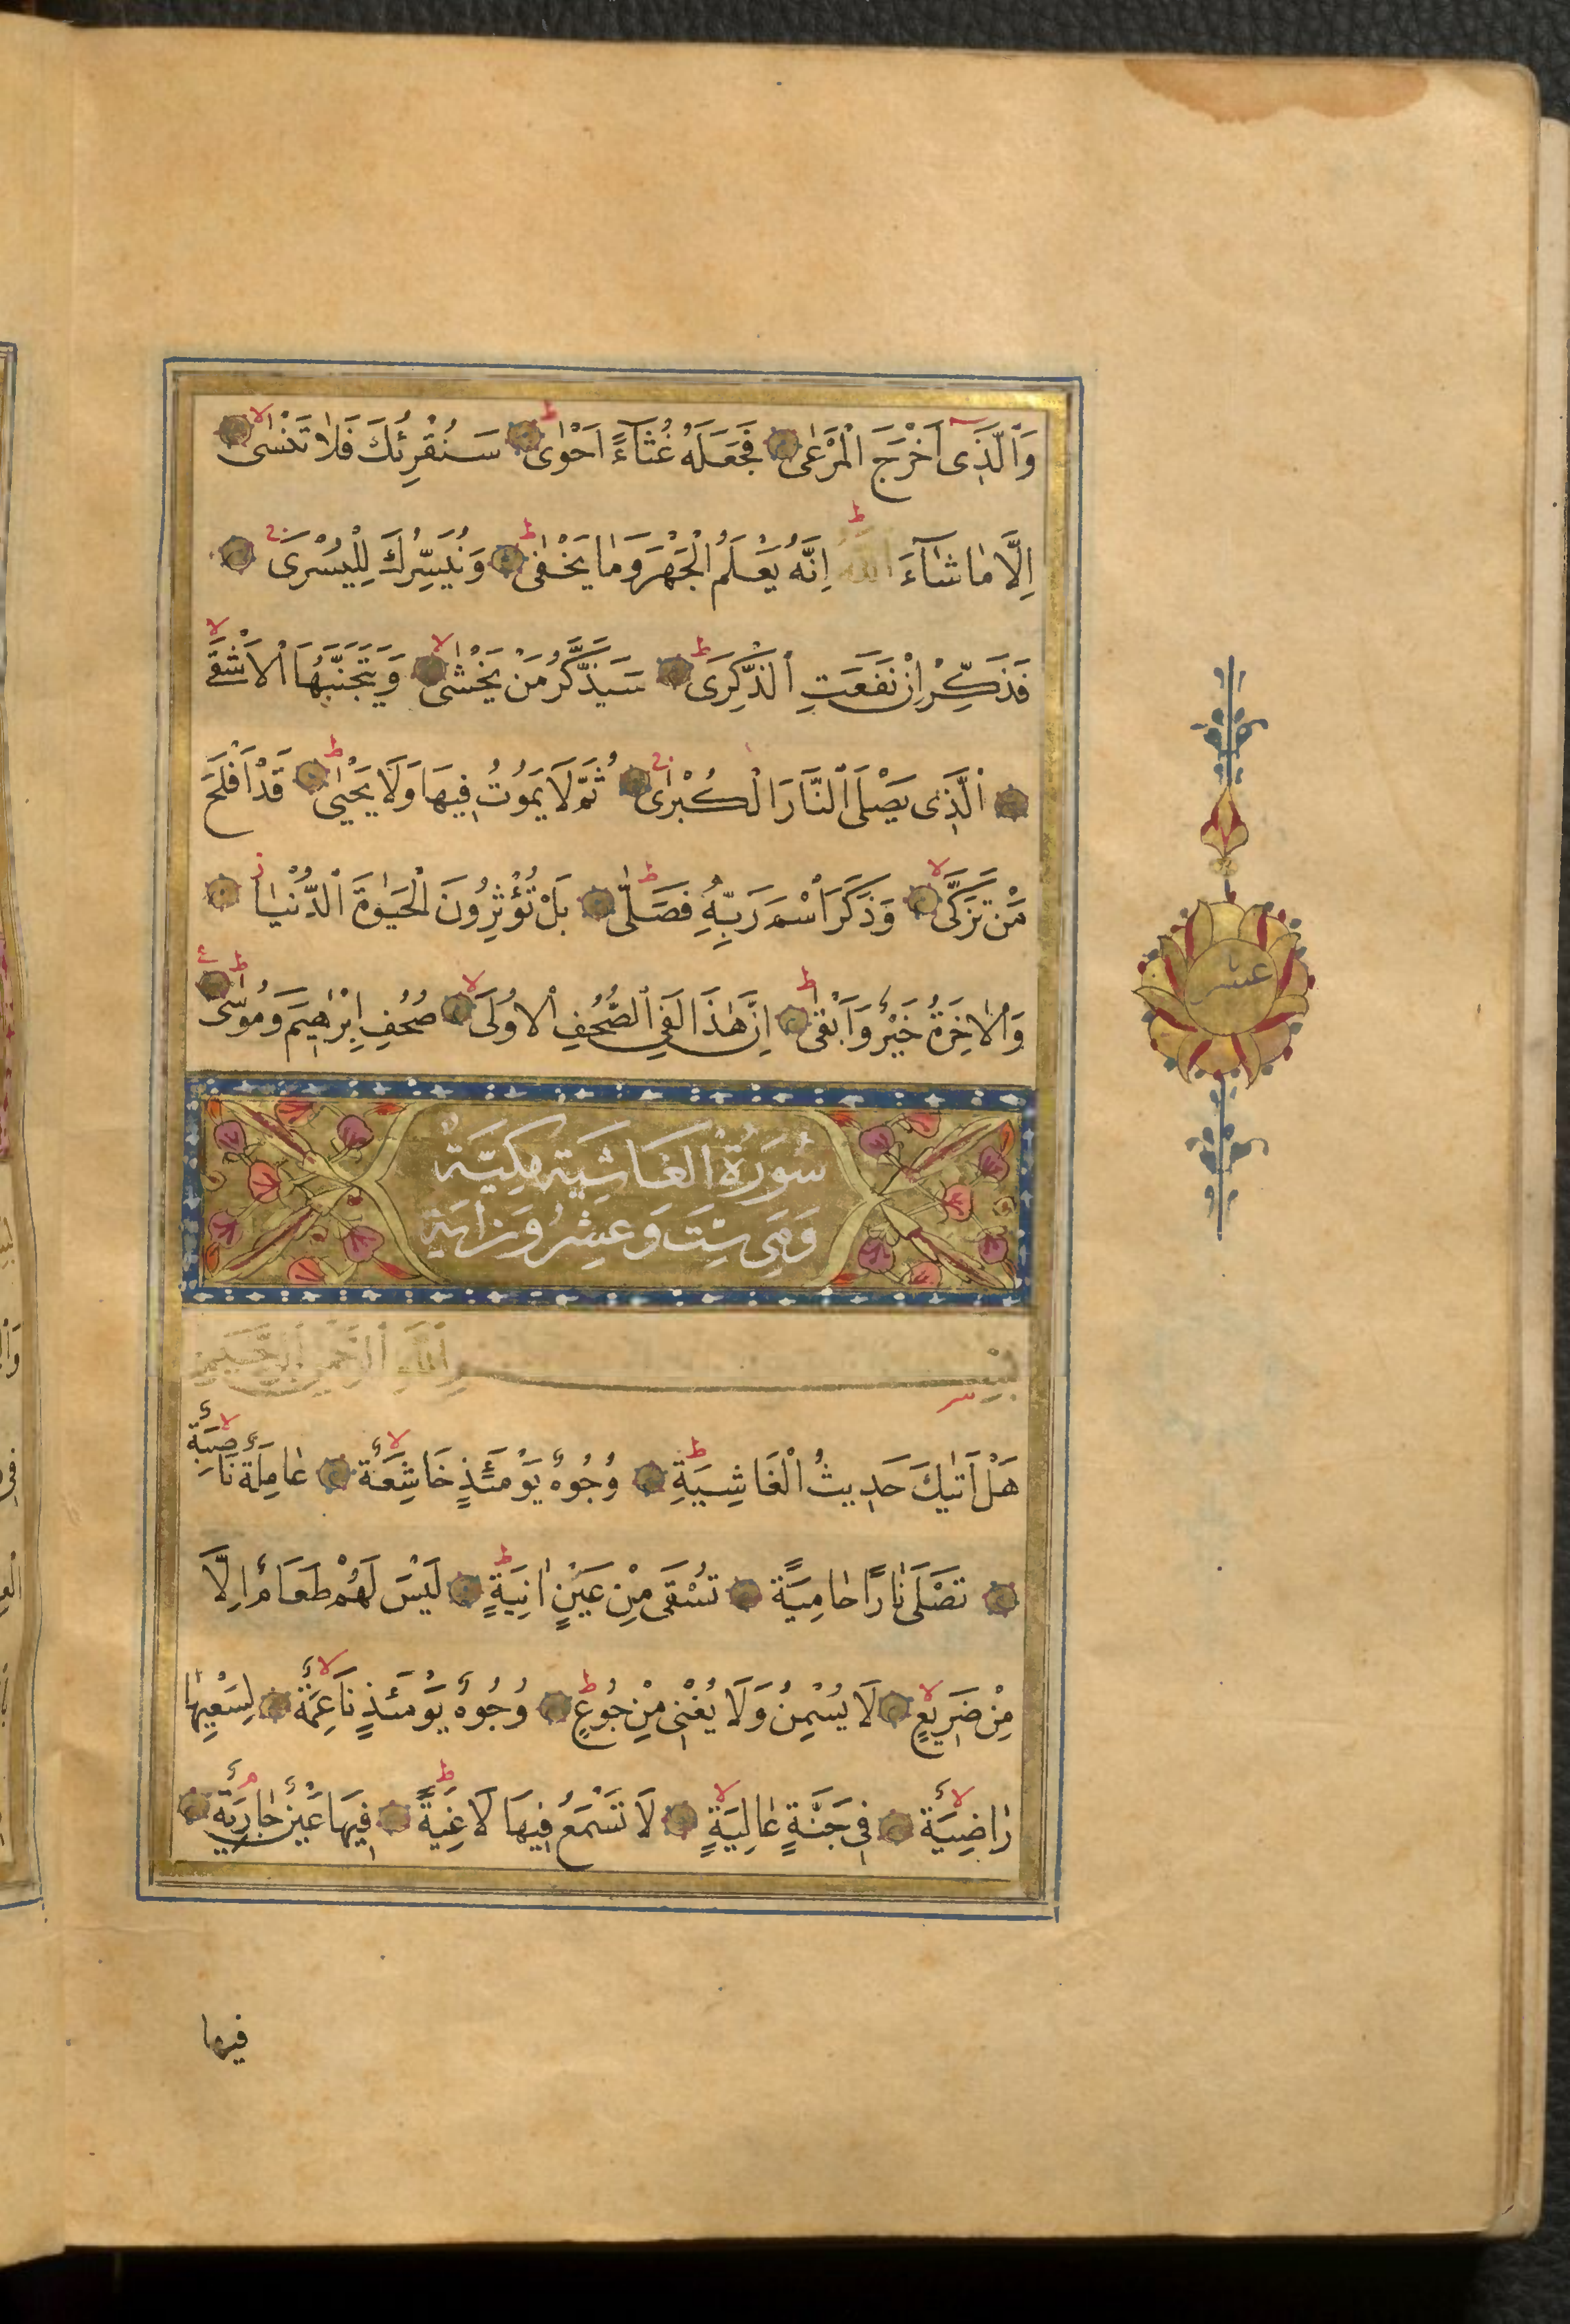 وَالَّذِى اَخْرَجَ الْمَرْعٰى فَجَعَلَهُ غُثَآءً اَحْوٰى سَنُقْرِئُكَ فَلَا تَنْسٰى
اِلَّا مَا شَآءَ اللّٰهُ اِنَّهُ يَعْلَمُ الْجَهْرَ وَمَا يَخْفٰى وَنُيَسِّرُكَ لِلْيُسْرَى
فَذَكِّرْ اِنْ نَفَعَتِ الذِّكْرَى سَيَذَّكَّرُ مَنْ يَخْشٰى وَيَتَجَنَّبُهَا الْاَشْقَى
الَّذِى يَصْلَى النَّارَ الْكُبْرٰى ثُمَّ لَا يَمُوتُ فِيهَا وَلَا يَحْيٰى قَدْ اَفْلَحَ
مَنْ تَزَكّٰى وَذَكَرَ اسْمَ رَبِّهِ فَصَلّٰى بَلْ تُؤْثِرُونَ الْحَيٰوةَ الدُّنْيَا
وَالْاٰخِرَةُ خَيْرٌ وَاَبْقٰى اِنَّ هٰذَا لَفِى الصُّحُفِ الْاُولَى صُحُفِ اِبْرٰهِيمَ وَمُوسٰى
عشر
سُورَةُ الْغَاشِيَة مَكِيَّةٌ
وَهِىَ سِتَ وَعِشِرُونَ اٰيَة
بِسْمِ اللّٰهِ الرَّحْمٰنِ الرَّحِيمِ
هَلْ اَتٰيكَ حَدِيثُ الْغَاشِيَةِ وُجُوهٌ يَوْمَئِذٍ خَاشِعَةٌ عَامِلَةٌ نَاصِبَةٌ
تَصْلَى نَارًا حَامِيَةً تُسْقَى مِنْ عَيْنٍ اٰنِيَةٍ لَيْسَ لَهُمْ طَعَامٌ اِلَّا
مِنْ ضَرِيعٍ لَا يُسْمِنُ وَلَا يُغْنِى مِنْ جُوعٍ وُجُوهٌ يَوْمَئِذٍ نَاعِمَةٌ لِسَعْيِهَا
رَاضِيَةٌ فِى جَنَّةٍ عَالِيَةٍ لَا تَسْمَعُ فِيهَا لَاغِيَةً فِيهَا عَيْنٌ جَارِيَةٌ
فيها